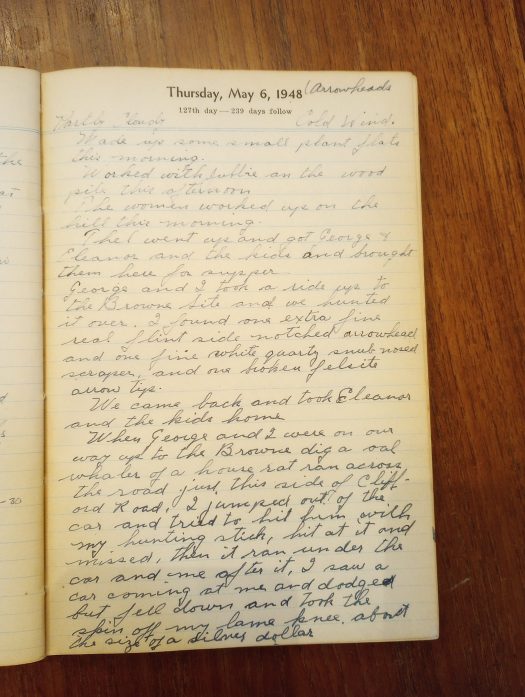 Thursday, May 6, 1948 (Arrowheads
127th day—239 days follow
Partly Cloudy Cold Wind.
Made up some small plant flats
this morning.
Worked with Dubbie on the wood
pile this afternoon
The women worked up on the
hill this morning.
The I went up and got George &
Eleanor and the kids and brought
them here for supper
George and I took a ride up to
the Browne Site and we hunted
it over. I found one extra fine
real flint side notched arrowhead
and one fine white quartz snub nosed
scraper, and one broken felsite
arrow tip.
We came back and took Eleanor
and the kids home
When George and I were on our
way up to the Browne dig a
whaler of a house rat ran across
the road just this side of Cliff-
ord Road, I jumped out of the
car and tried to hit him with
my hunting stick, hit at it and
missed, then it ran under the
car and me after it, I saw a
car coming at me and dodged
but fell down and took the
skin off my lame knee about
the size of a silver dollar
the
-30